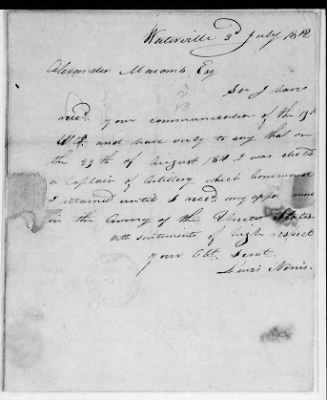 Waterville 3d July 1812
Alexander Macomb Esq
Sir I have
reced your communication of the 13th
Ult. and have only to say that on
the 27th of August 1811 I was elected
a Captain of Artillery which
I retained until I reced my
in the Army of the United States
with sentiments of high respect
your Obt. Servt.
Morris.